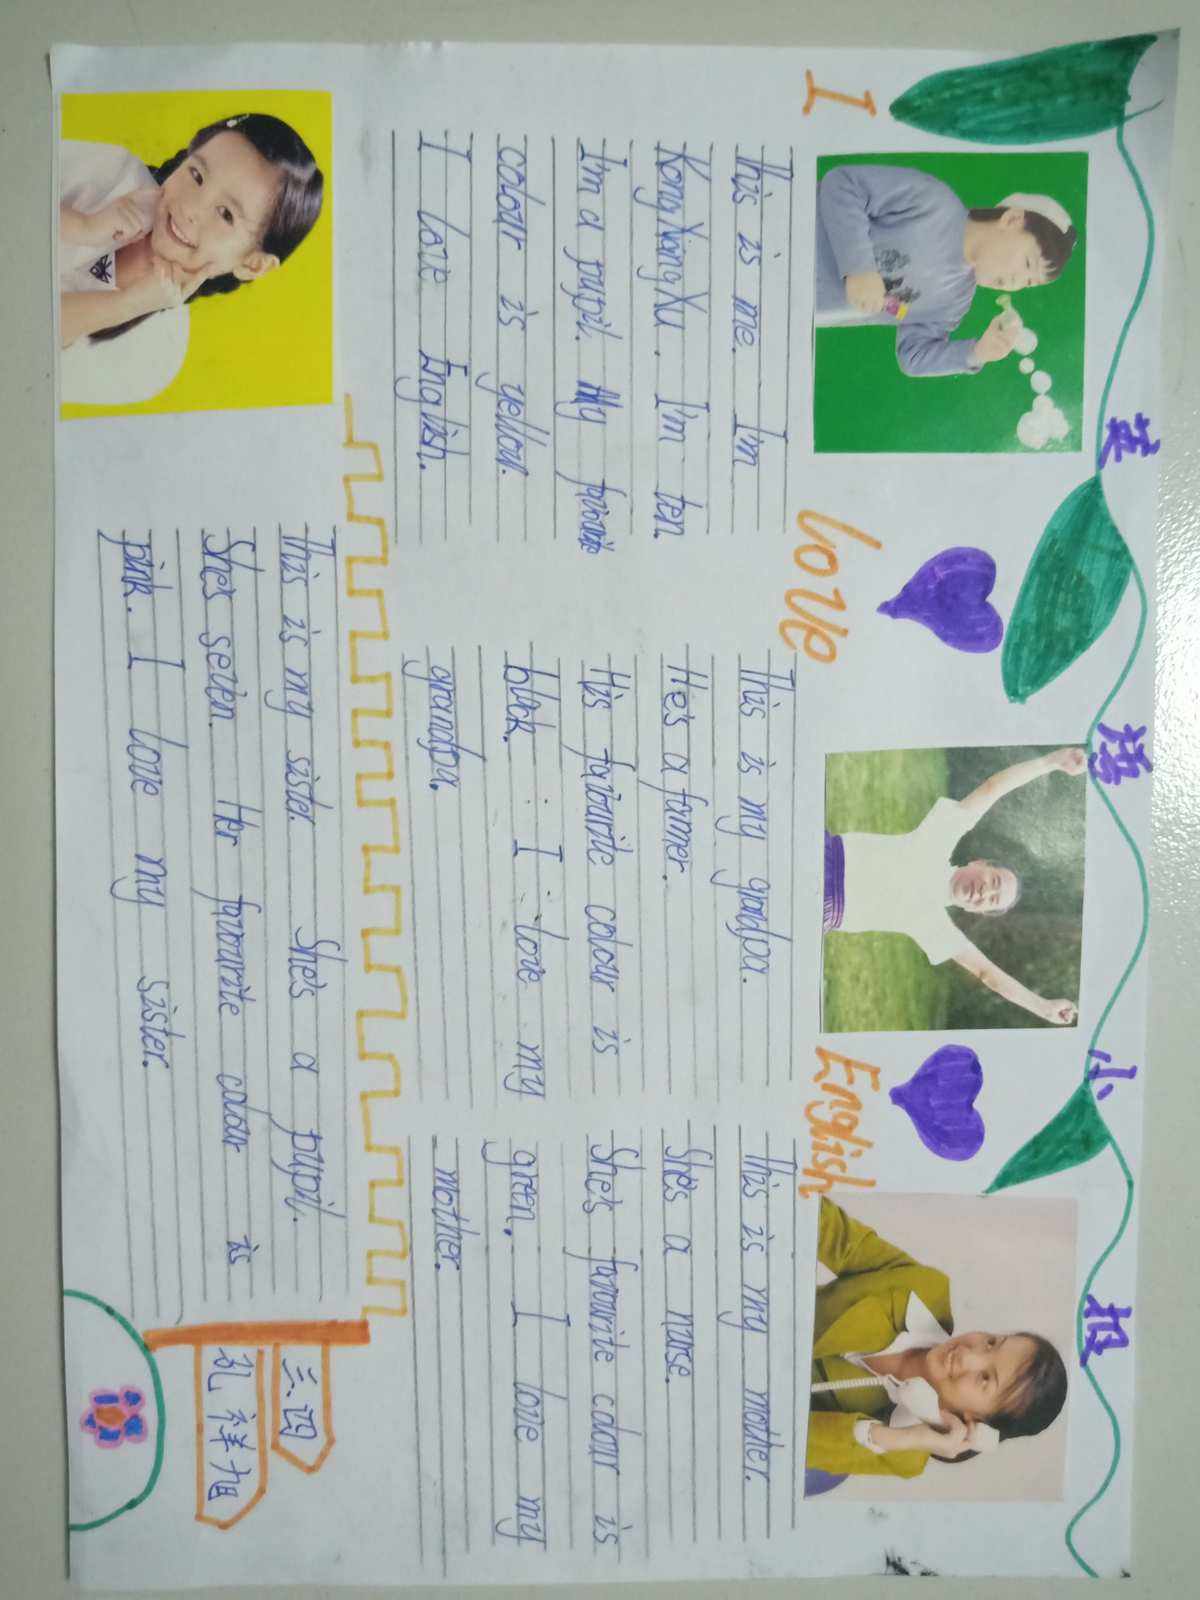 英语小报
I love English
This is me. I'm
Kong Xiang Xu. I'm ten.
I'm a pupil. My favourite
colour is yellow.
I love English.
This is my grandpa.
He's a farmer.
His favourite colour is
black. I love my
grandpa.
This is my mother.
She's a nurse.
She's favourite colour is
green. I love my
mother.
This is my sister. She's a pupil.
She's seven. Her favourite colour is
pink. I love my sister.
三.四
孔祥旭